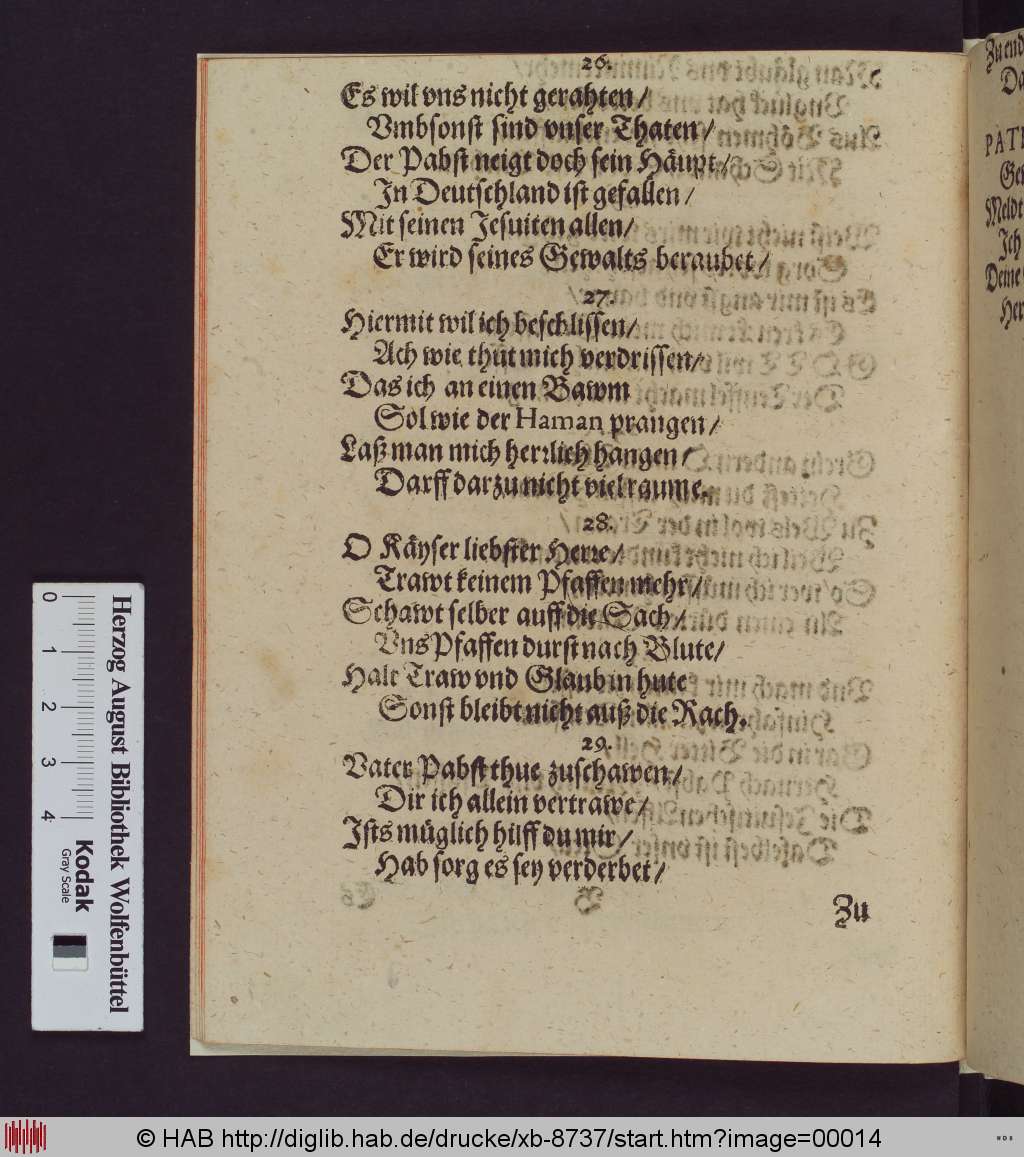 26.
Es wil vns nicht gerahten/
Vmbsonst sind vnser Thaten/
Der Pabst neigt doch sein Häupt/
In Deutschland ist gefallen/
Mit seinen Jesuiten allen/
Er wird seines Gewalts beraubet/
27.
Hiermit wil ich beschlissen/
Ach wie thut mich verdrissen/
Das ich an einen Bawm
Sol wie der Haman prangen/
Laß man mich herrlich hangen/
Darff darzu nicht viel raume.
28.
O Käyser liebster Herre/
Trawt keinem Pfaffen mehr/
Schawt selber auff die Sach/
Vns Pfaffen durst nach Blute/
Halt Traw vnd Glaub in hute
Sonst bleibt nicht auß die Rach.
29.
Vater Pabst thue zuschawen/
Dir ich allein vertrawe/
Ists müglich hilff du mir/
Hab sorg es sey verderbet/
Zu
Zu end
Da
PAT
Ge
Meldt
Ich
Deine
Her
Herzog August Bibliothek Wolfenbüttel
0 1 2 3 4
Kodak
Gray Scale
© HAB http://diglib.hab.de/drucke/xb-8737/start.htm?image=00014